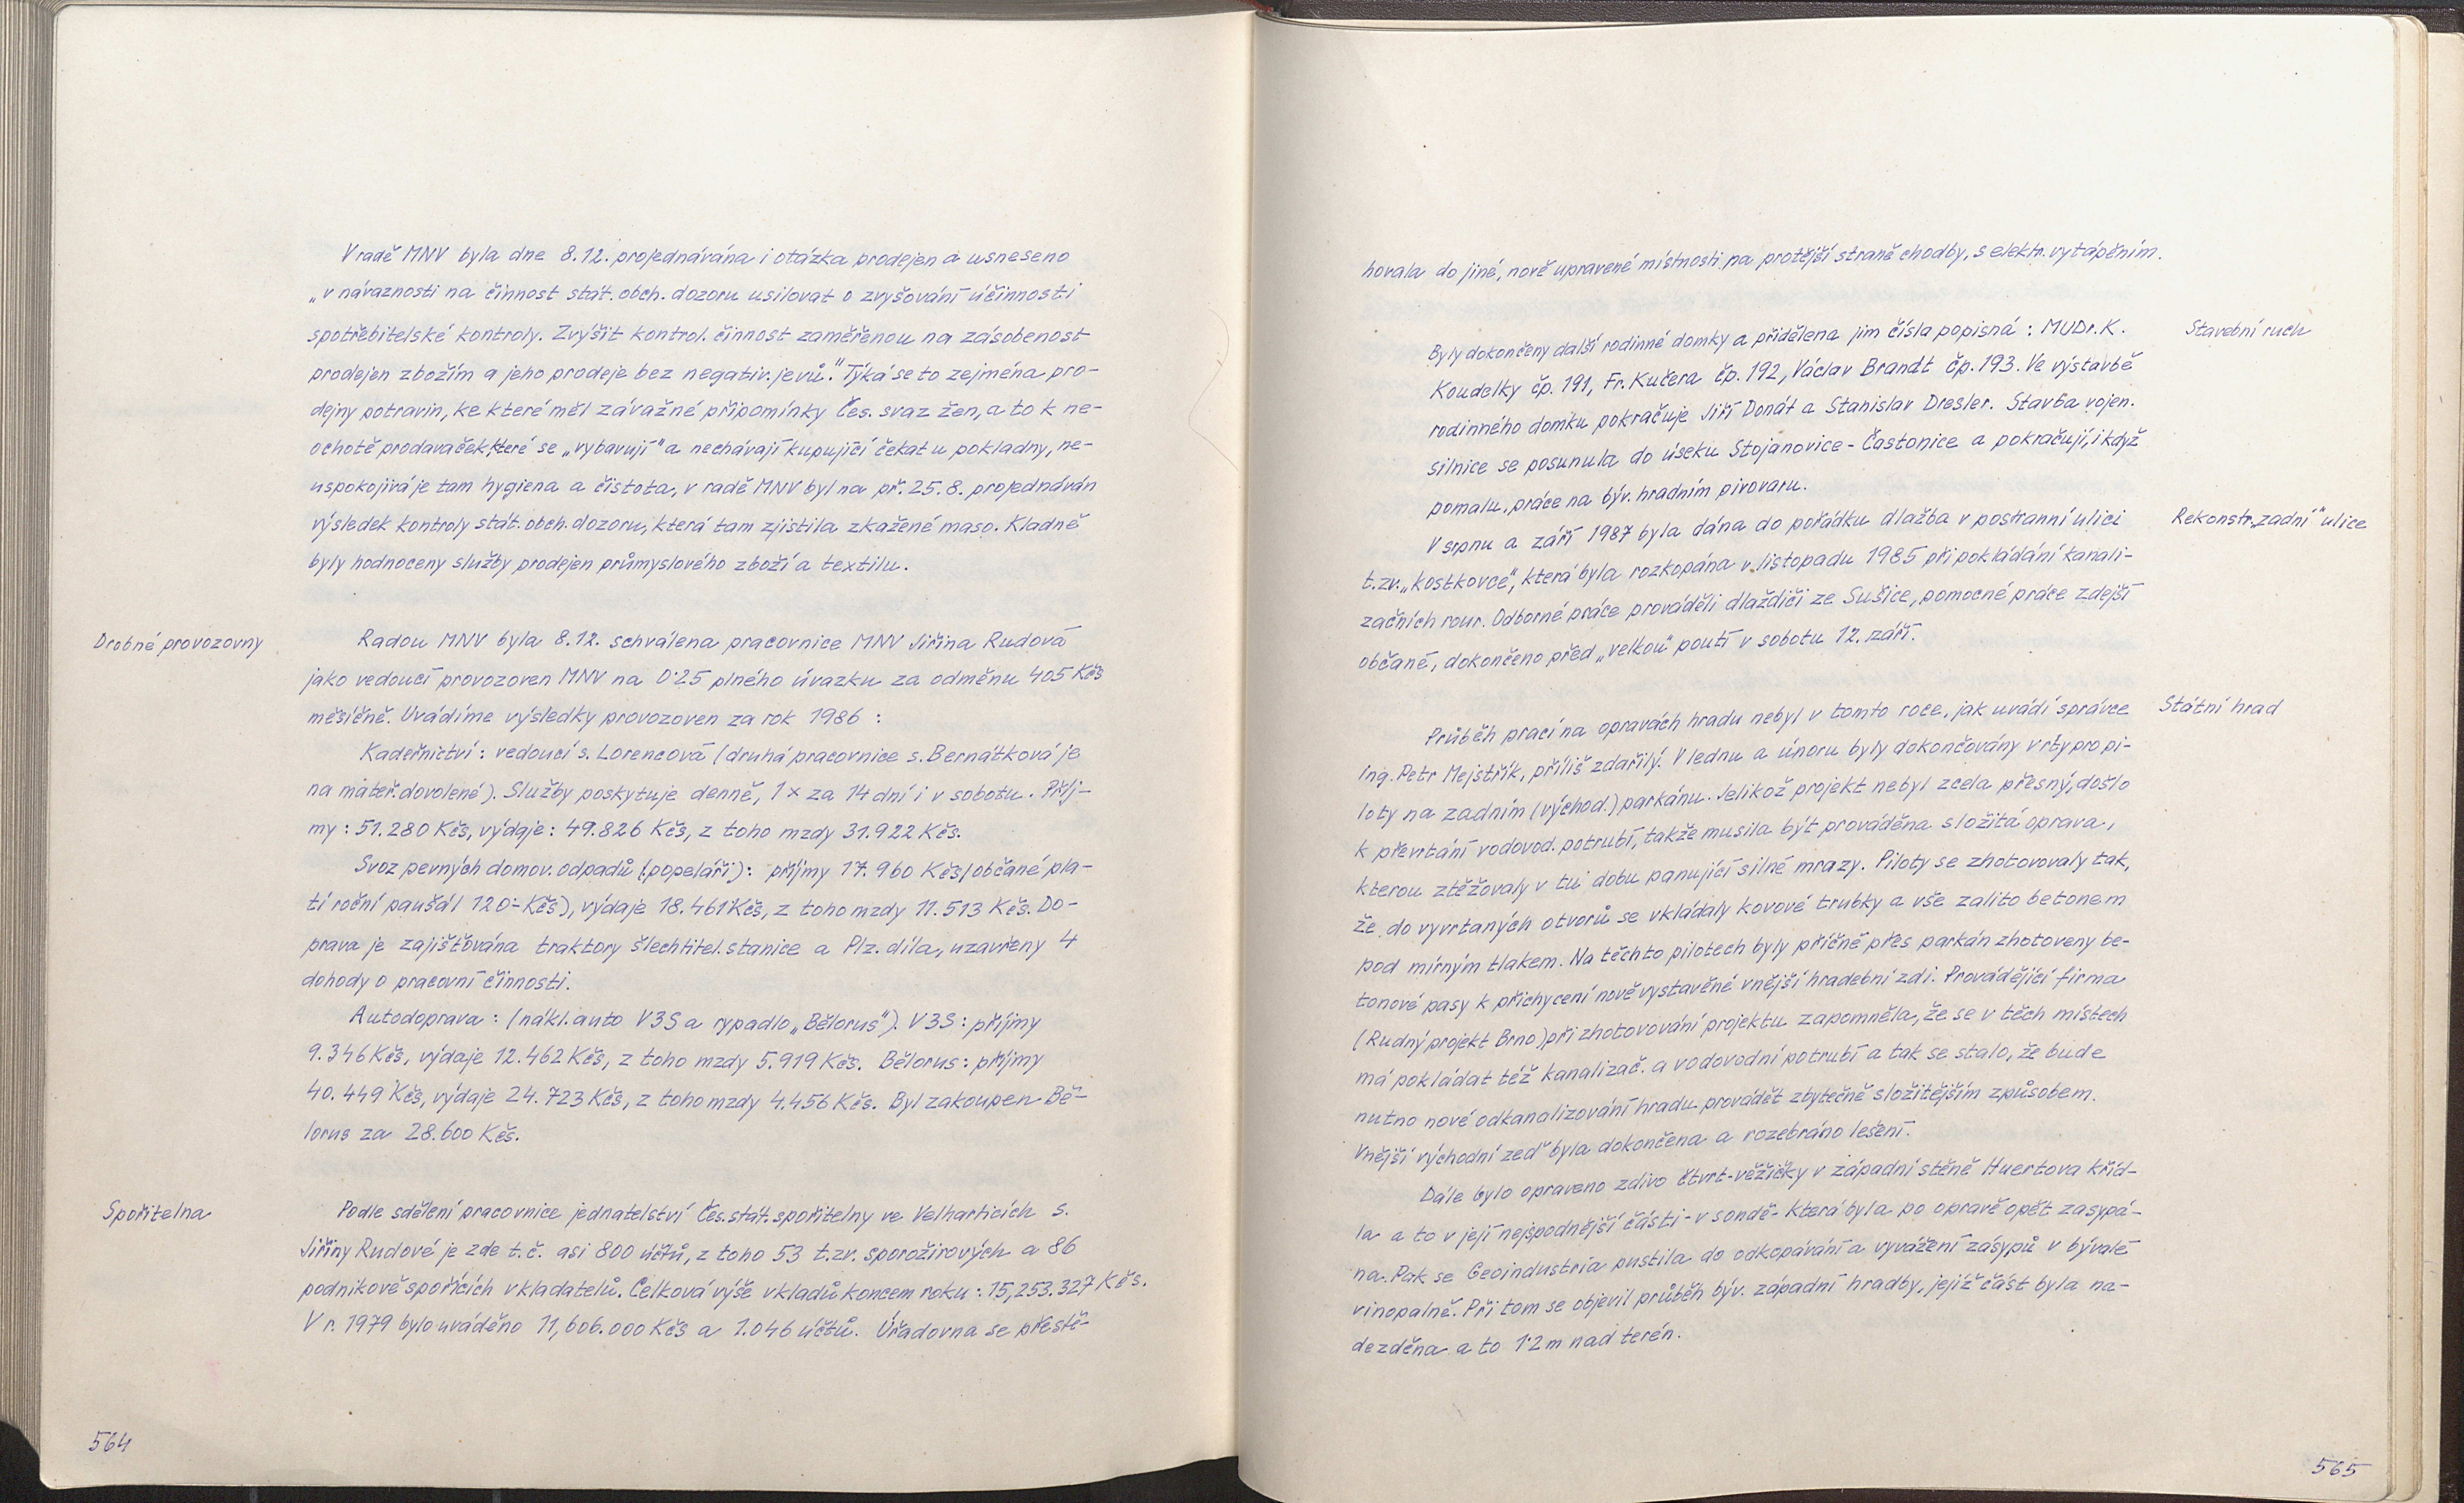 V radě MNV byla dne 8.12. projednávána i otázka prodejen a usneseno
„v návaznosti na činnost stát. obch. dozoru usilovat o zvyšování účinnosti
spotřebitelské kontroly. Zvýšit kontrol. činnost zaměřenou na zásobenost
prodejen zbožím a jeho prodeje bez negativ. jevů.“ Týká se to zejména pro-
dejny potravin, ke které měl závažné připomínky Čes. svaz žen, a to k ne-
ochotě prodavaček, které se „vybavují“ a nechávají kupující čekat u pokladny, ne-
uspokojivá je tam hygiena a čistota, v radě MNV byl na př. 25.8. projednáván
výsledek kontroly stát. obch. dozoru, která tam zjistila zkažené maso. Kladně
byly hodnoceny služby prodejen průmyslového zboží a textilu.
Drobné provozovny
Radou MNV byla 8.12. schválena pracovnice MNV Jiřina Rudová
jako vedoucí provozoven MNV na 0·25 plného úvazku za odměnu 405 Kčs
měsíčně. Uvádíme výsledky provozoven za rok 1986 :
Kadeřnictví : vedoucí s. Lorencová (druhá pracovnice s. Bernátková je
na mateř. dovolené). Služby poskytuje denně, 1 x za 14 dní i v sobotu. Příj-
my : 51.280 Kčs, výdaje : 49.826 Kčs, z toho mzdy 31.922 Kčs.
Svoz pevných domov. odpadů (popeláři): příjmy 17.960 Kčs (občané pla-
tí roční paušál 120·- Kčs), výdaje 18.461 Kčs, z toho mzdy 11.513 Kčs. Do-
prava je zajišťována traktory šlechtitel. stanice a Plz. díla, uzavřeny 4
dohody o pracovní činnosti.
Autodoprava : (nákl. auto V3S a rypadlo „Bělorus“). V3S : příjmy
9.346 Kčs, výdaje 12.462 Kčs, z toho mzdy 5.919 Kčs. Bělorus : příjmy
40.449 Kčs, výdaje 24.723 Kčs, z toho mzdy 4.456 Kčs. Byl zakoupen Bě-
lorus za 28.600 Kčs.
Spořitelna
Podle sdělení pracovnice jednatelství Čes. stát. spořitelny ve Velharticích s.
Jiřiny Rudové je zde t.č. asi 800 účtů, z toho 53 t.zv. sporožirových a 86
podnikově spořících vkladatelů. Celková výše vkladů koncem roku : 15,253.327 Kčs.
V r. 1979 bylo uváděno 11,606.000 Kčs a 1.046 účtů. Úřadovna se přestě-
564
hovala do jiné, nově upravené místnosti na protější straně chodby, s elektr. vytápěním.
Stavební ruch
Byly dokončeny další rodinné domky a přidělena jim čísla popisná : MUDr. K.
Koudelky čp. 191, Fr. Kučera čp. 192, Václav Brandt čp. 193. Ve výstavbě
rodinného domku pokračuje Jiří Donát a Stanislav Dresler. Stavba vojen.
silnice se posunula do úseku Stojanovice - Častonice a pokračují, i když
pomalu, práce na býv. hradním pivovaru.
Rekonstr. „zadní“ ulice
V srpnu a září 1987 byla dána do pořádku dlažba v postranní ulici
t.zv. „kostkovce“, která byla rozkopána v listopadu 1985 při pokládání kanali-
začních rour. Odborné práce prováděli dlaždiči ze Sušice, pomocné práce zdejší
občané, dokončeno před „velkou“ poutí v sobotu 12. září.
Státní hrad
Průběh prací na opravách hradu nebyl v tomto roce, jak uvádí správce
ing. Petr Mejstřík, příliš zdařilý. V lednu a únoru byly dokončovány vrty pro pi-
loty na zadním (východ.) parkánu. Jelikož projekt nebyl zcela přesný, došlo
k převrtání vodovod. potrubí, takže musila být prováděna složitá oprava,
kterou ztěžovaly v tu dobu panující silné mrazy. Piloty se zhotovovaly tak,
že do vyvrtaných otvorů se vkládaly kovové trubky a vše zalito betonem
pod mírným tlakem. Na těchto pilotech byly příčně přes parkán zhotoveny be-
tonové pasy k přichycení nově vystavěné vnější hradební zdi. Provádějící firma
(Rudný projekt Brno) při zhotovování projektu zapomněla, že se v těch místech
má pokládat též kanalizač. a vodovodní potrubí a tak se stalo, že bude
nutno nové odkanalizování hradu provádět zbytečně složitějším způsobem.
Vnější východní zeď byla dokončena a rozebráno lešení.
Dále bylo opraveno zdivo čtvrt-věžičky v západní stěně Huertova kříd-
la a to v její nejspodnější části - v sondě - která byla po opravě opět zasypá-
na. Pak se Geoindustria pustila do odkopávání a vyvážení zásypů v bývalé
vinopalně. Při tom se objevil průběh býv. západní hradby, jejíž část byla na-
dezděna a to 1·2 m nad terén.
565